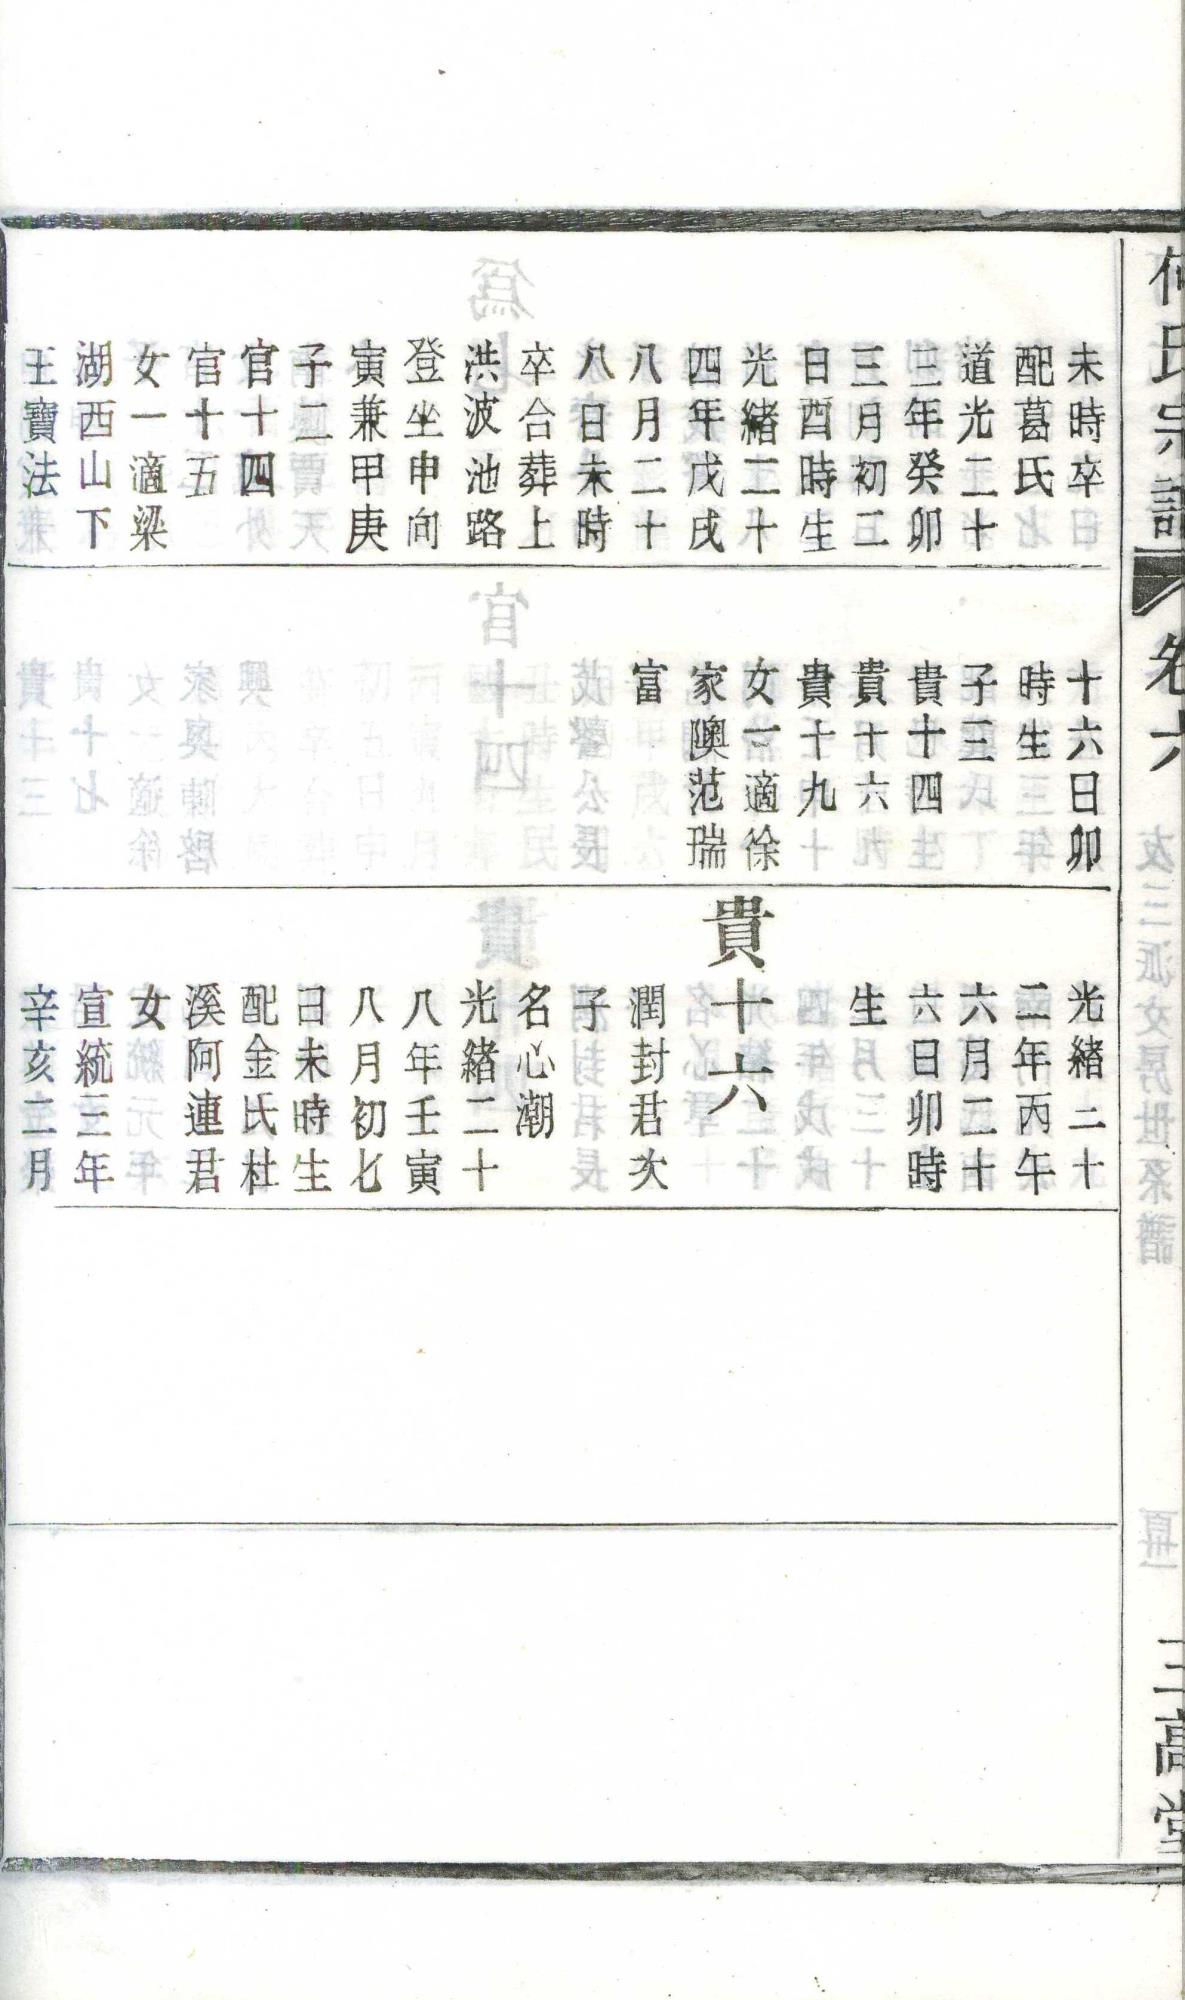 何氏宗譜
卷六
三高堂
未時卒
配葛氏
道光二十
三年癸卯
三月初二
日酉時生
光緒二十
四年戊戌
八月二十
八日未時
卒合葬上
洪波池路
登坐申向
寅兼甲庚
子二
官十四
官十五
女一適梁
湖西山下
王寶法
十六日卯
時生
子三
貴十四
貴十六
貴十九
女一適徐
家隩范瑞
富
光緒二十
二年丙午
六月二十
六日卯時
生
貴十六
潤封君次
子
名心潮
光緒二十
八年壬寅
八月初七
日未時生
配金氏杜
溪阿連君
女
宣統三年
辛亥二月